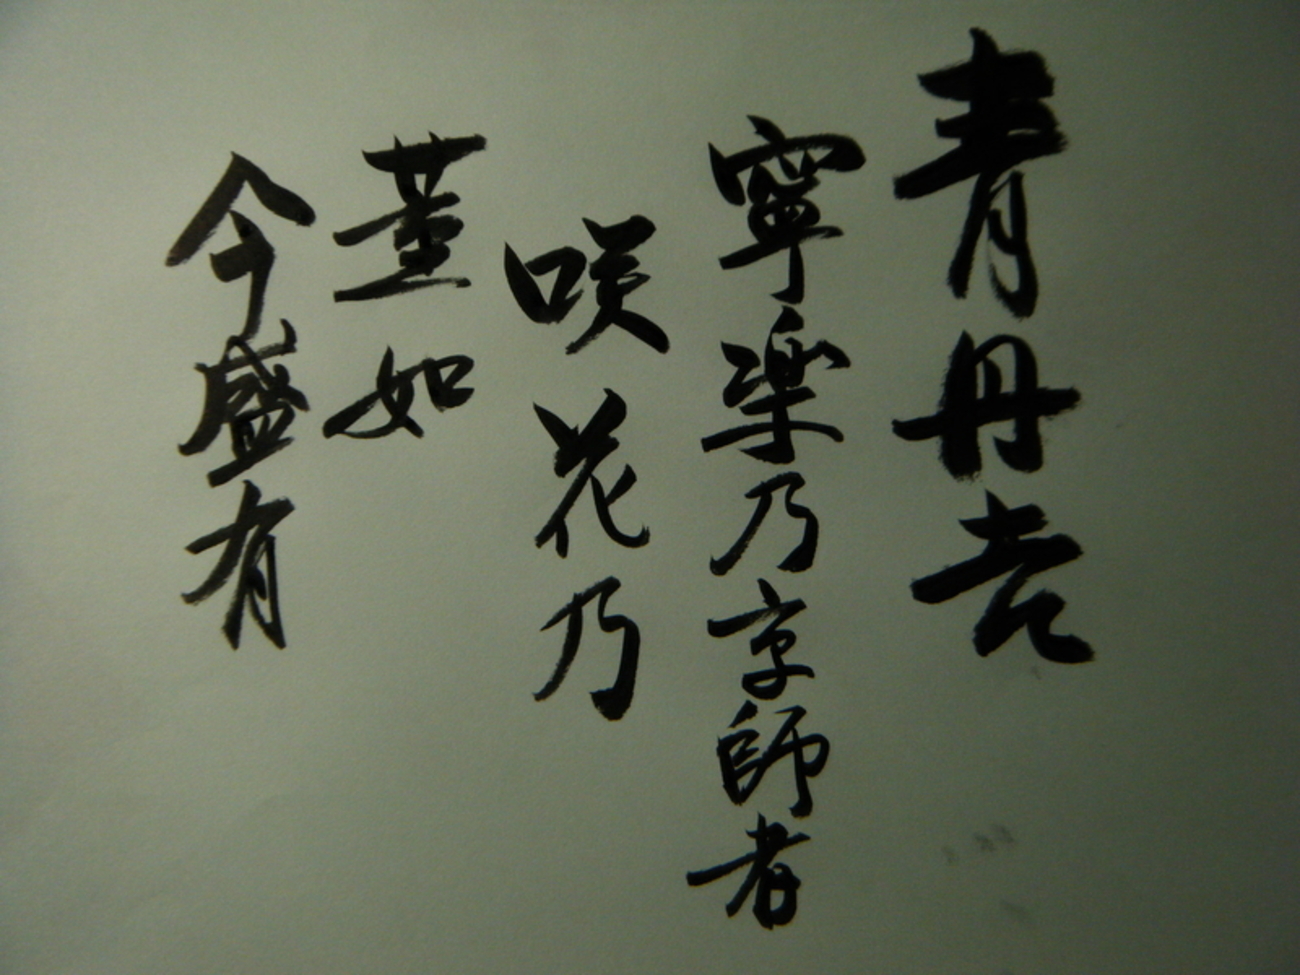 青丹吉
寧楽乃京師者
咲花乃
薫如
今盛有